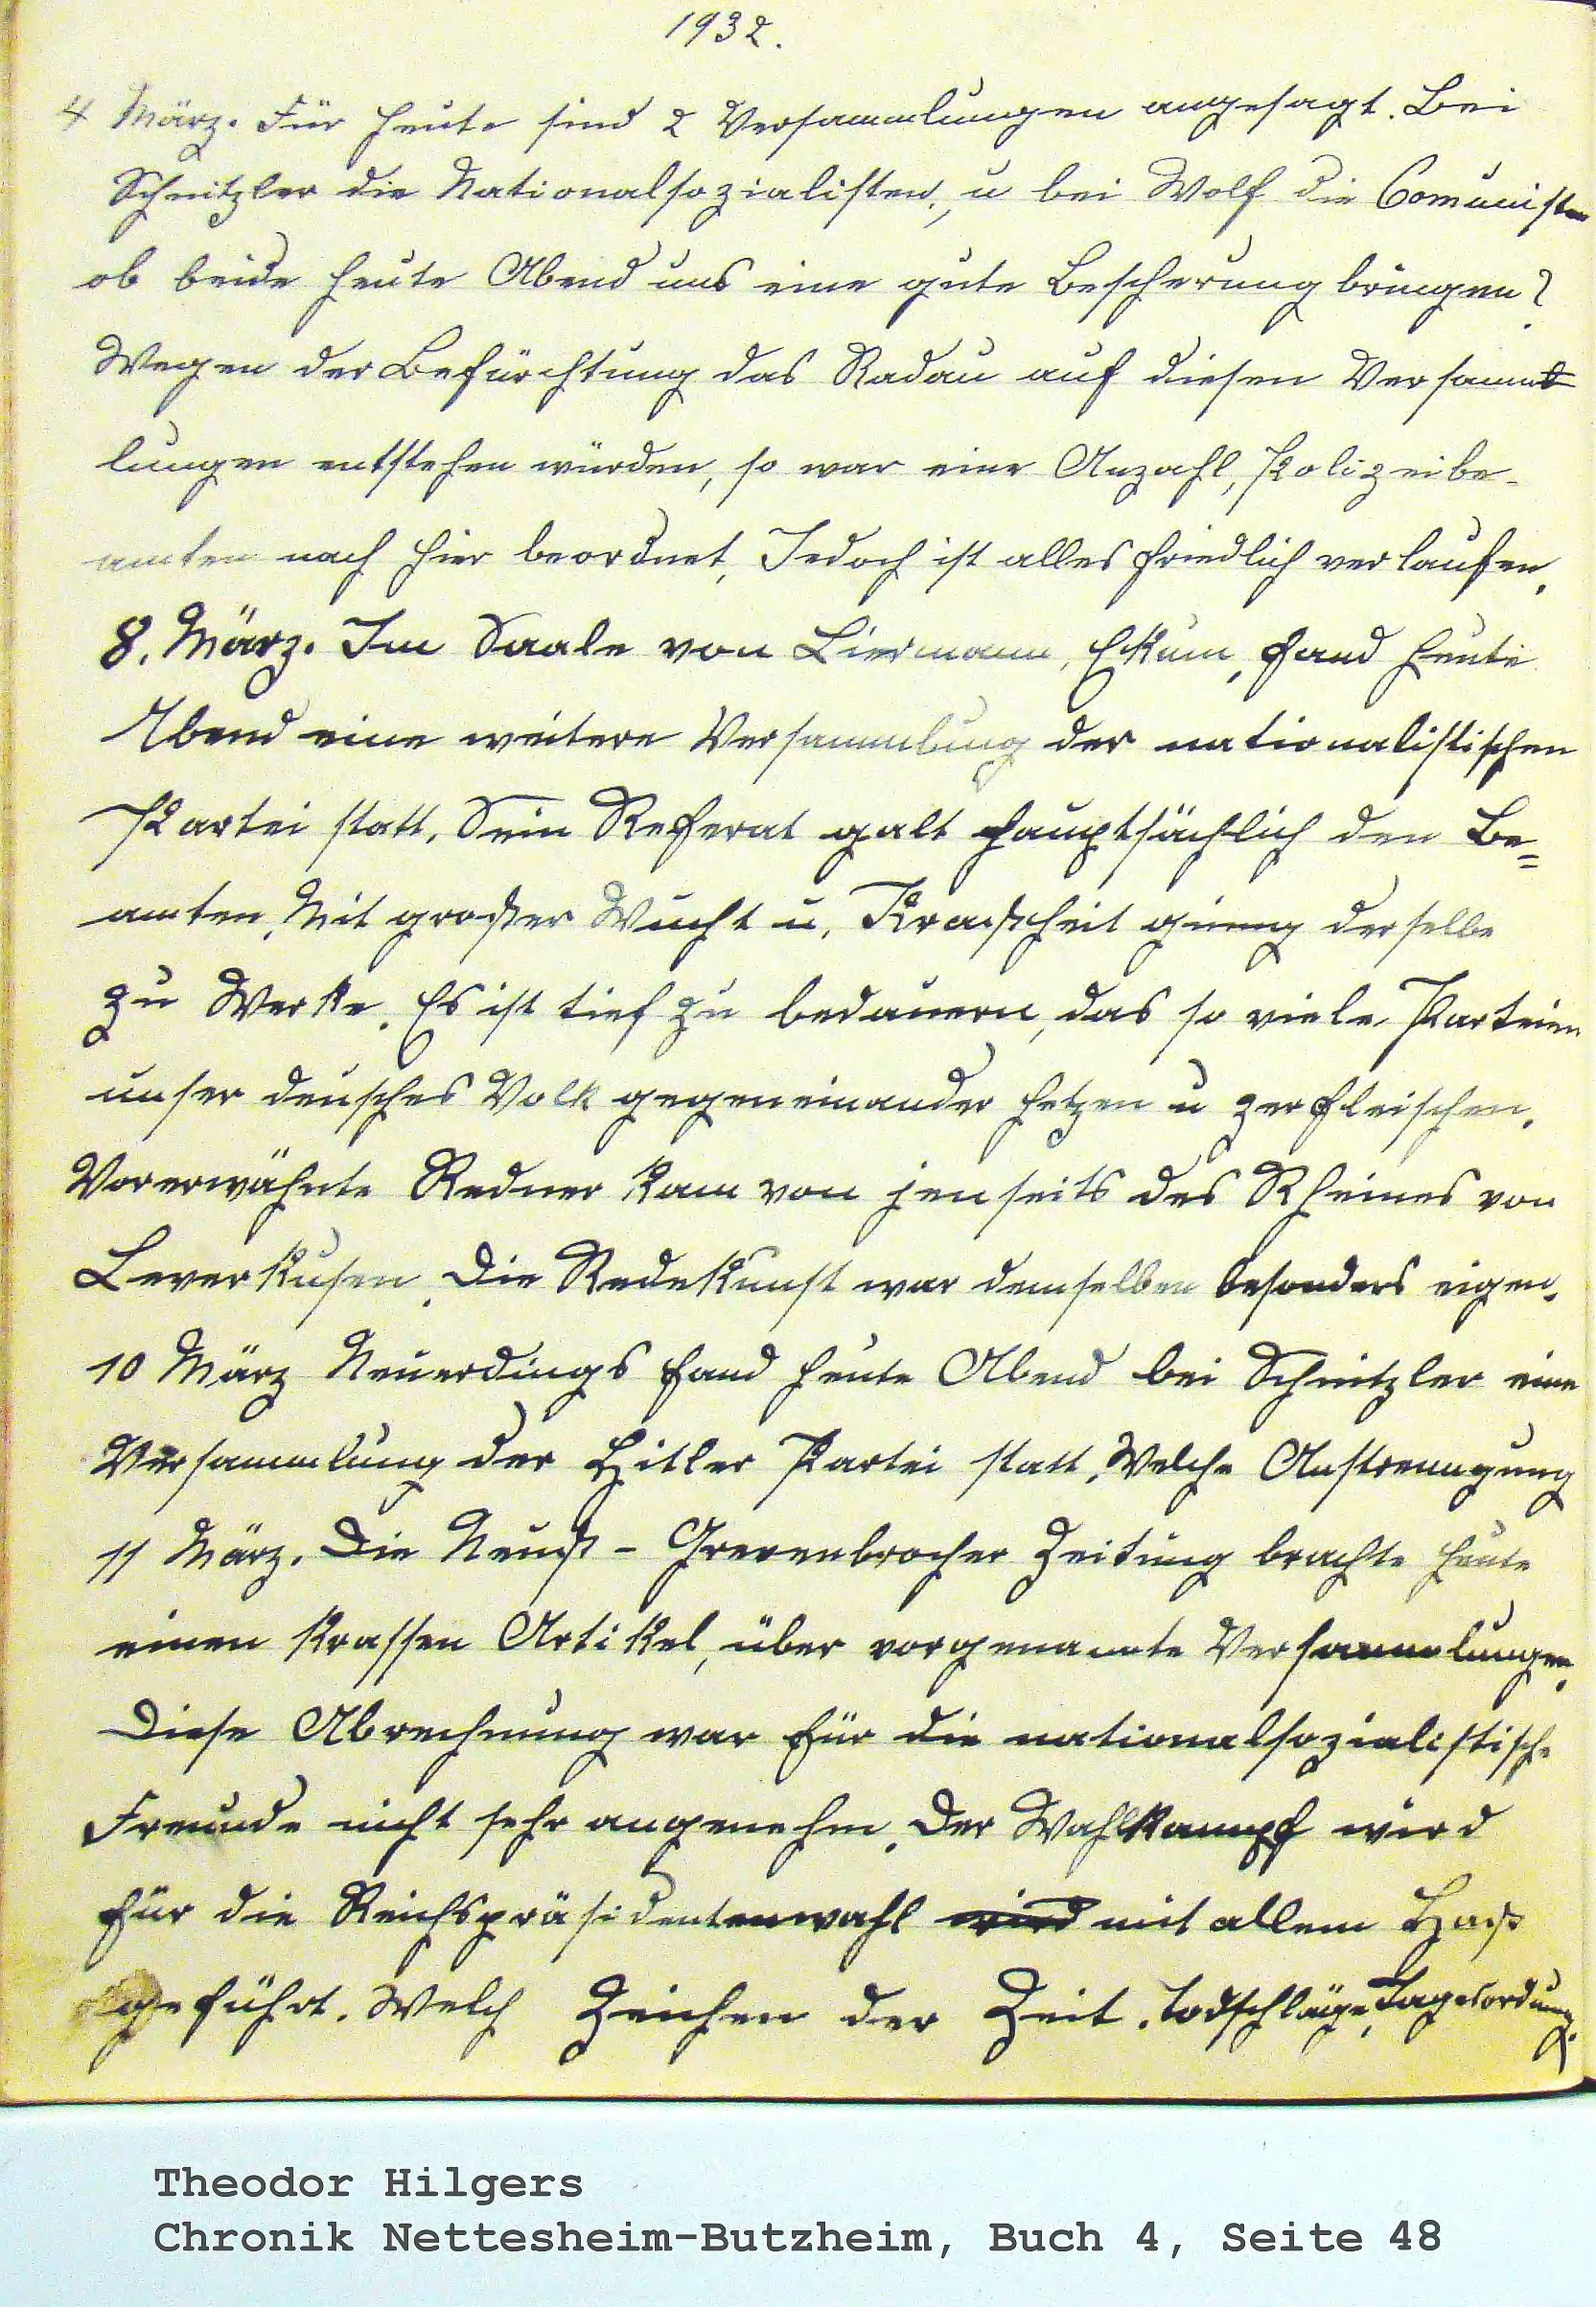 1932.
4 März. Für heute sind 2 Versammlungen angesagt. Bei
Schnitzler die Nationalsozialisten, u bei Wolf die Comunisten
ob beide heute Abend uns eine gute Bescherung bringen?
Wegen der Befürchtung das Radau auf diesen Versamm
lungen entstehen würden, so war eine Anzahl, Polizeibe-
amten nach hier beordnet, Jedoch ist alles friedlich verlaufen.
8. März. Im Saale von Liermann, Ekum, fand heute
Abend eine weitere Versammlung der nationalistischen
Partei statt. Sein Referat galt hauptsächlich den Be=
amten. Mit großer Wucht u. Kraßheit gieng derselbe
zu Werke. Es ist tief zu bedauern, das so viele Parteien
unser deusches Volk gegeneinander hetzen u zerfleischen.
Vorerwähnte Redner kam von jenseits des Rheines von
Leverkusen. Die Redekunst war demselben besonders eigen.
10 März Neuerdings fand heute Abend bei Schnitzler eine
Versammlung der Hitler Partei statt. Welche Anstrenngung
11 März. Die Neuß-Grevenbrocher Zeitung brachte heute
einen krassen Artikel, über vorgenannte Versammlungen.
Diese Abrechnung war für die nationalsozialistische
Freunde nicht sehr angenehm. Der Wahlkampf wird
für die Reichspräsidentenwahl wird mit allem Haß
geführt. Welch Zeichen der Zeit. Todschläge, Tagesordung.
Theodor Hilgers
Chronik Nettesheim-Butzheim, Buch 4, Seite 48